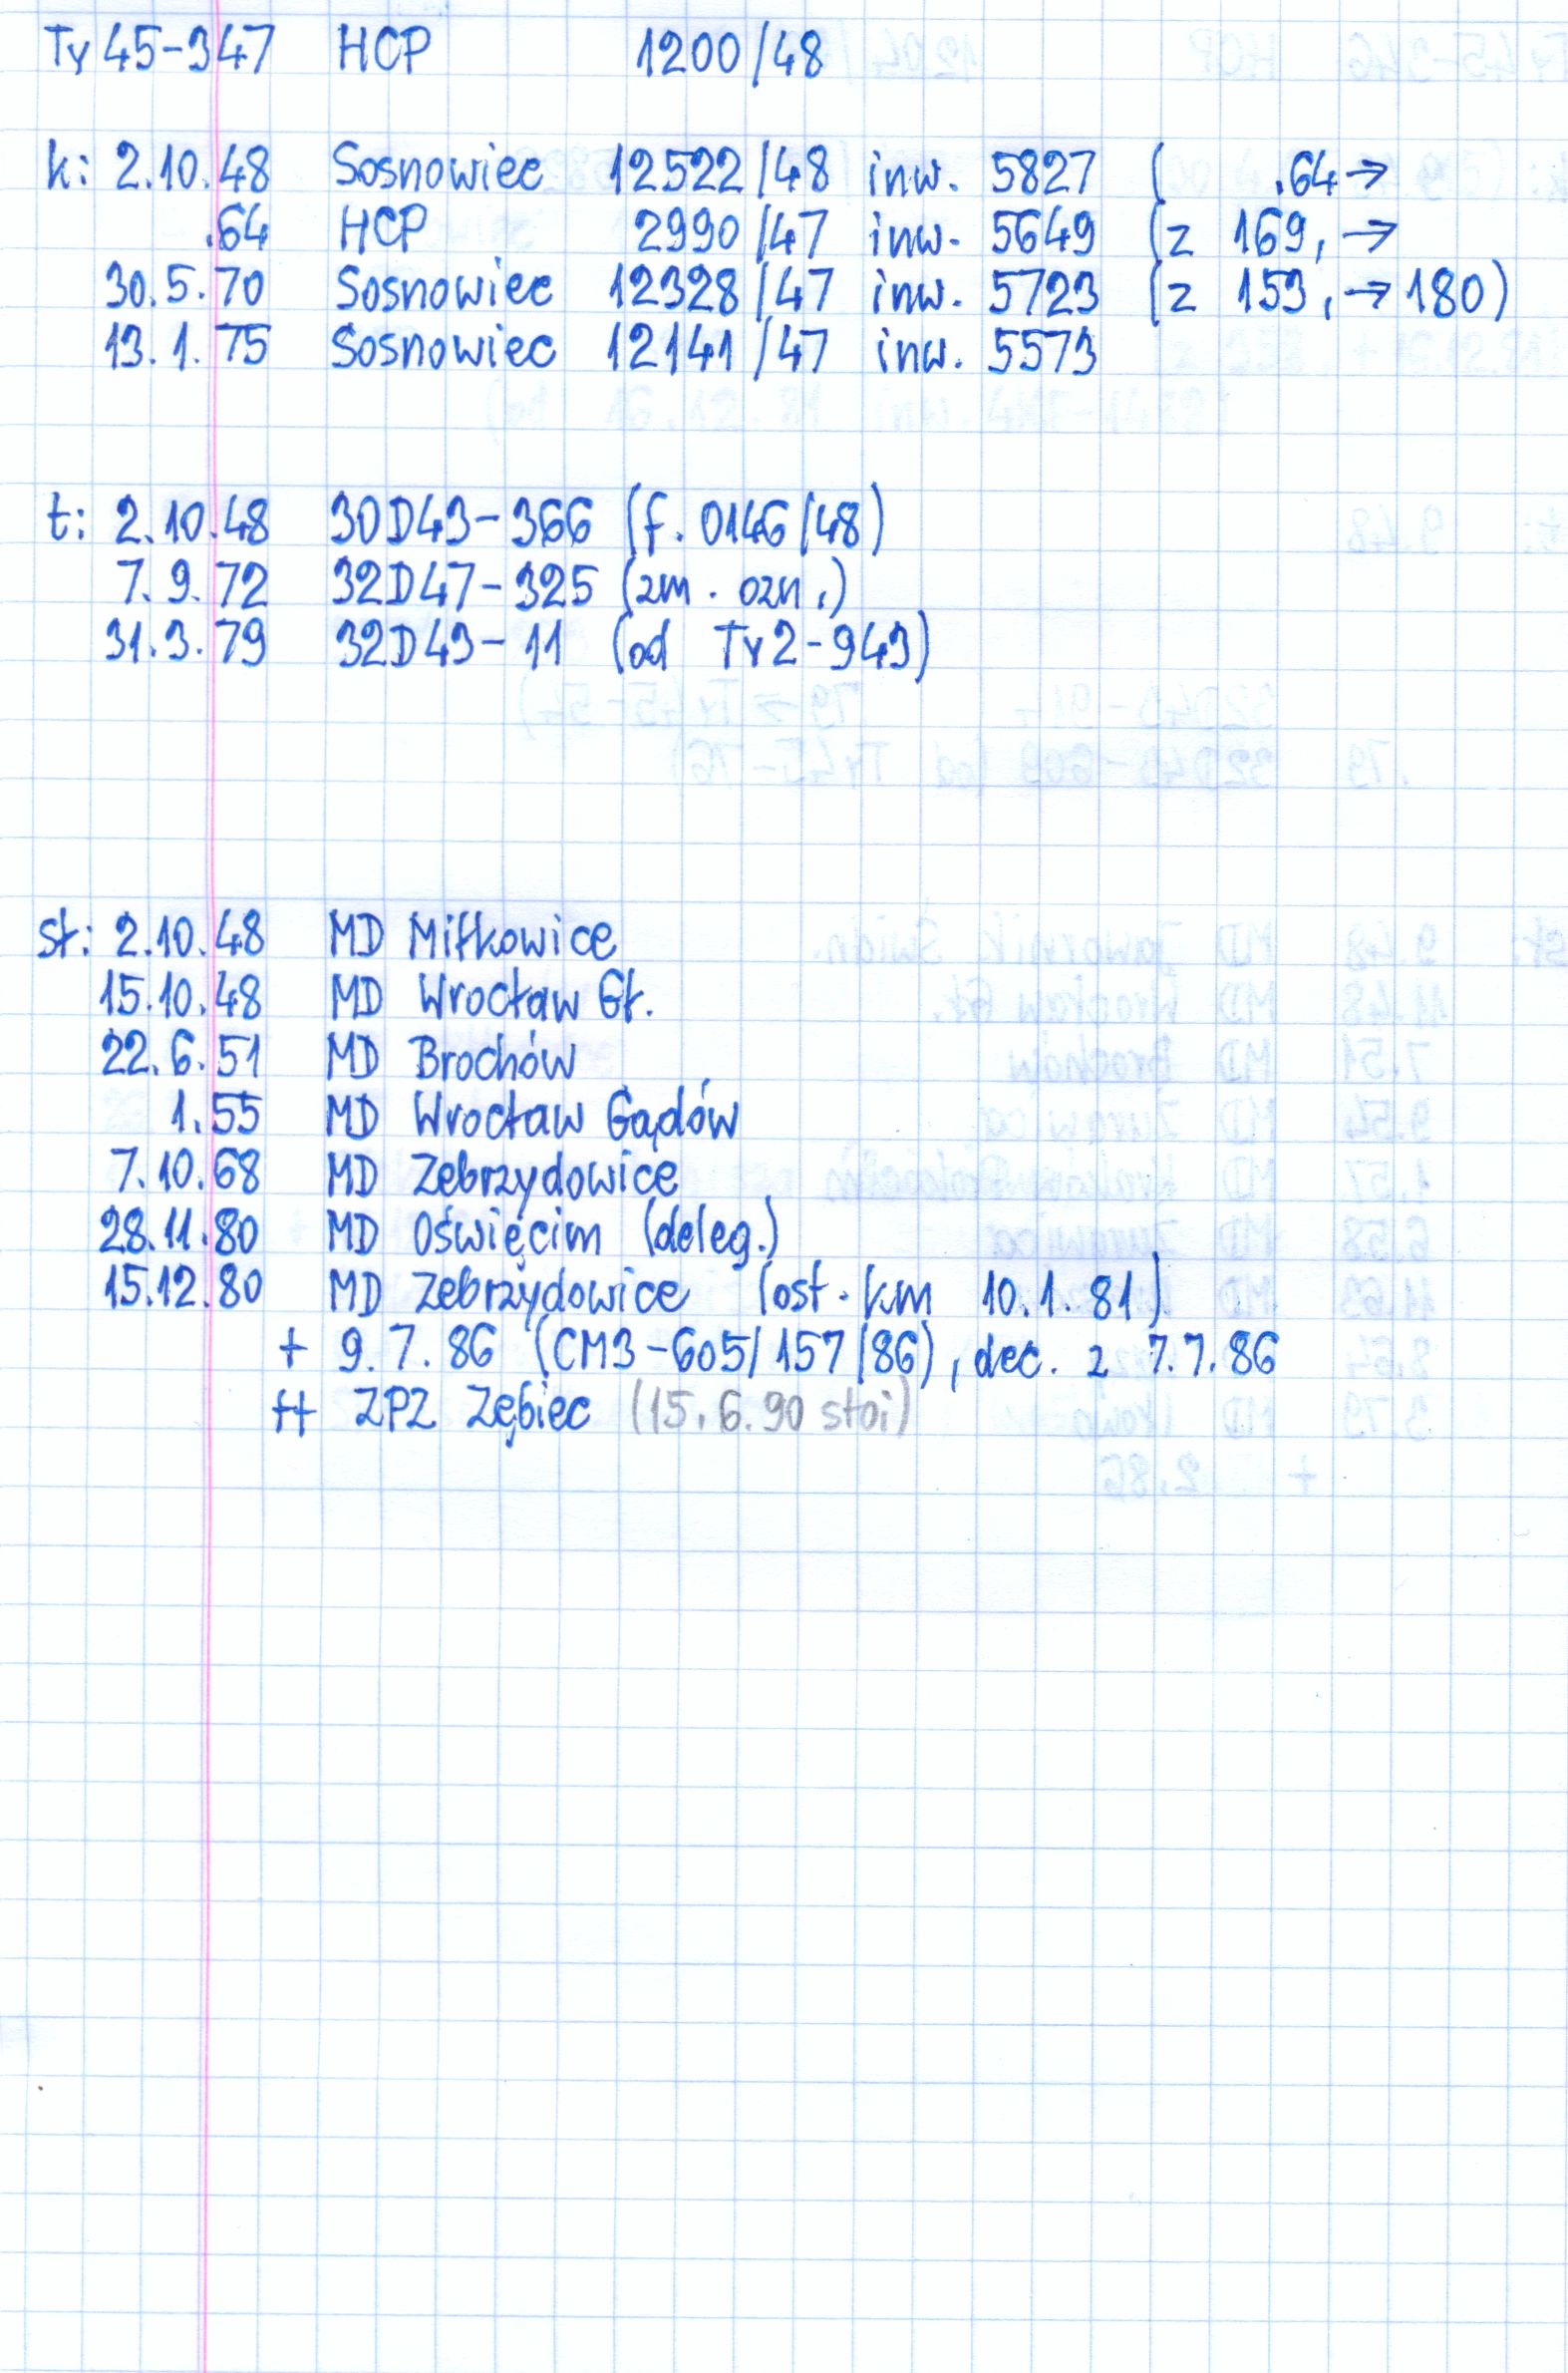 Ty 45-347 HCP 1200/48
k: 2.10.48 Sosnowiec 12522/48 inw. 5827 ( .64→
.64 HCP 2990/47 inw. 5649 (z 169, →
30.5.70 Sosnowiec 12328/47 inw. 5723 (z 153, → 180)
13.1.75 Sosnowiec 12141/47 inw. 5573
t: 2.10.48 30D43-366 (f. 0146/48)
7.9.72 32D47-325 (zm. ozn.)
31.3.79 32D43-11 (od Ty2-943)
st: 2.10.48 MD Miłkowice
15.10.48 MD Wrocław Gł.
22.6.51 MD Brochów
1.55 MD Wrocław Gądów
7.10.68 MD Zebrzydowice
28.11.80 MD Oświęcim (deleg.)
15.12.80 MD Zebrzydowice (ost. km 10.1.81)
+ 9.7.86 (CM3-605/157/86), dec. z 7.7.86
++ ZPZ Zębiec (15.6.90 stoi)